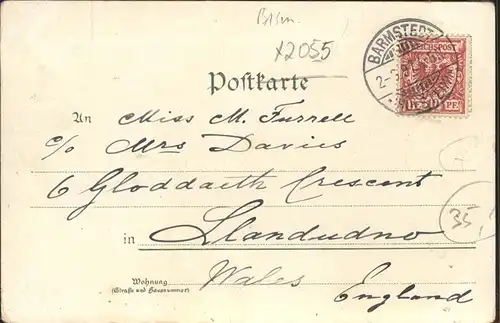 Bism.
x2055
BARMSTEDT
REICHSPOST
Postkarte
An Miss M. Furrell
c/o Mrs Davies
6 Gloddaeth Crescent
in Llandudno
Wohnung
(Straße und Hausnummer)
Wales
England
35